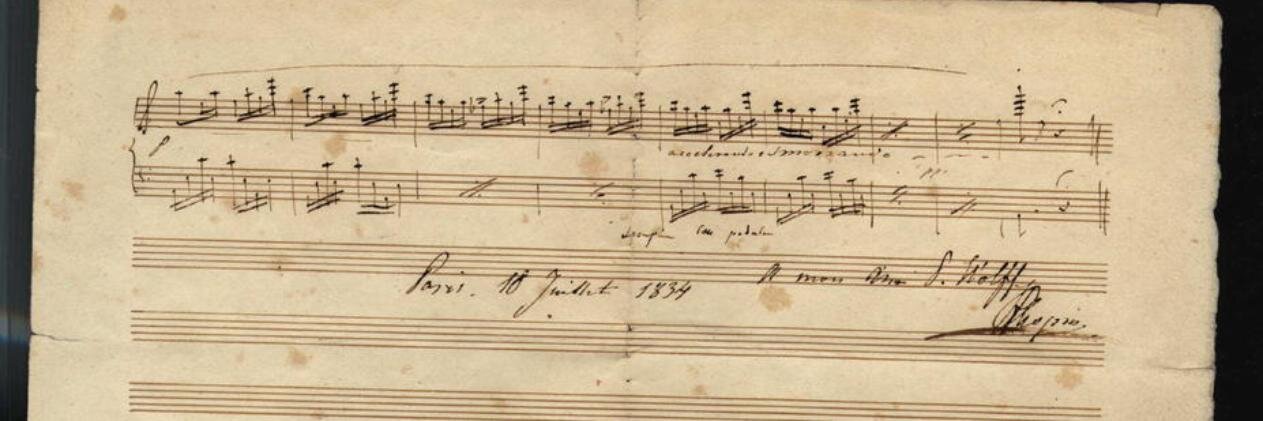 p
accelerando e smorzando
pp
sempre
Paris. 10 Juillet 1834 A mon Ami P. Wolff
Chopin